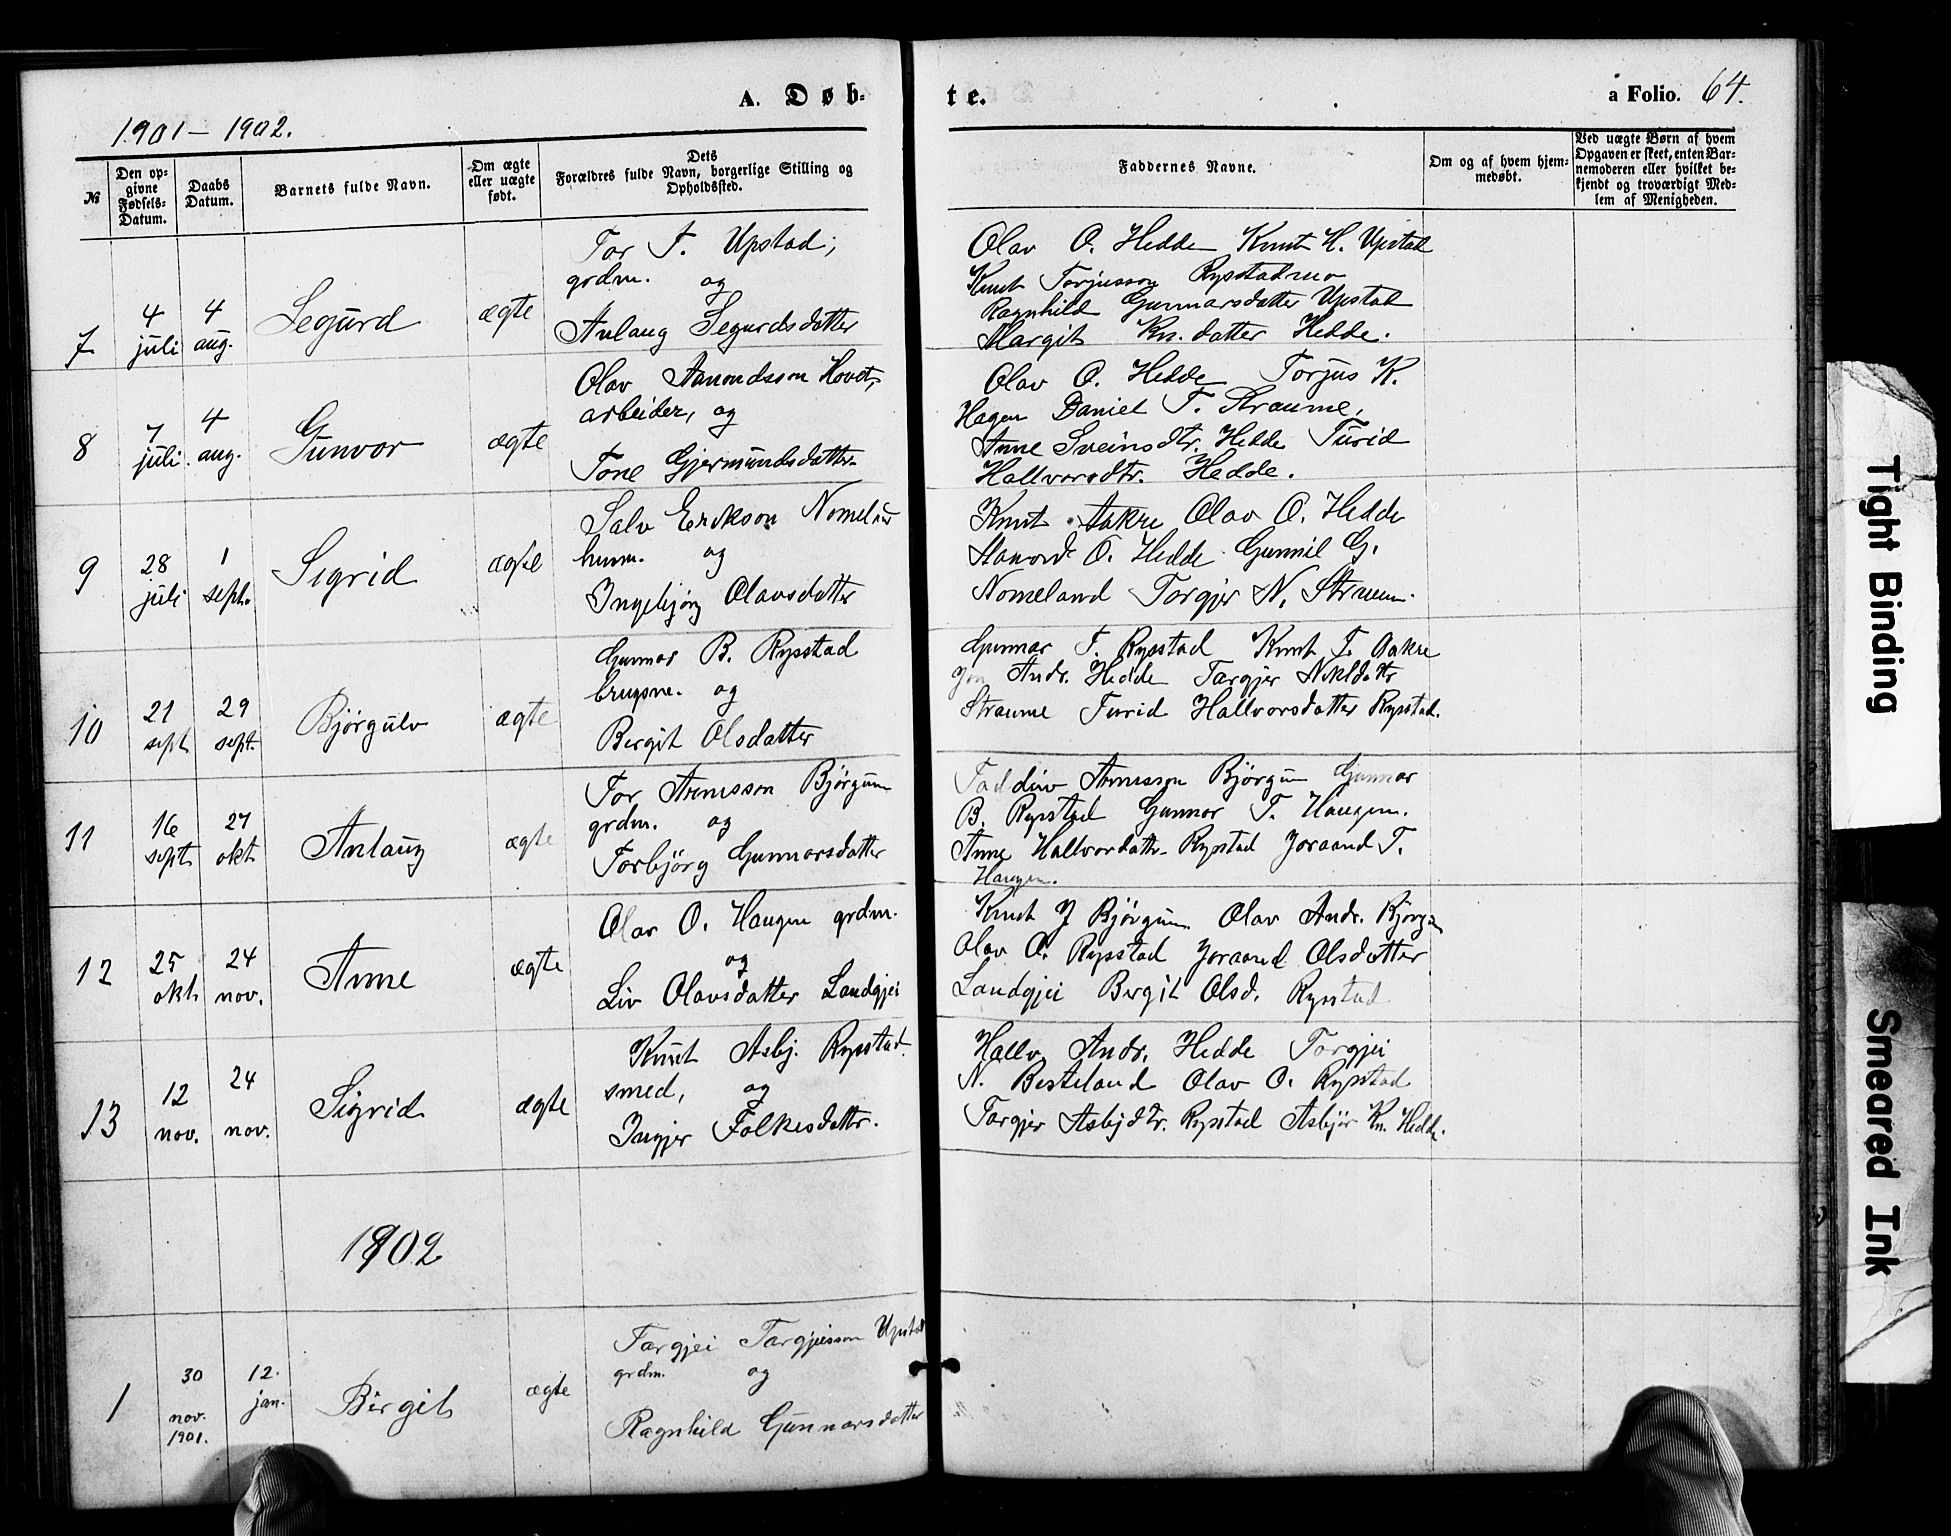 A. Døb-
te.
a Folio. 64.
1901 - 1902.
№
Den op-
givne
Fødsels-
Datum.
Daabs
Datum.
Barnets fulde Navn.
Om ægte
eller uægte
født.
Dets
Forældres fulde Navn, borgerlige Stilling og
Opholdssted.
Faddernes Navne.
Om og af hvem hjem-
medøbt.
Ved uægte Børn af hvem
Opgaven er skeet, enten Bar-
nemoderen eller hvilket be-
kjendt og troværdigt Med-
lem af Menigheden.
7
4
juli
4
aug.
Segurd
ægte
Tor T. Upstad,
grdm. og
Anlaug Segurdsdatter
Olav O. Hedde Knut H. Upstad
Knut Torjusson Rysstadmo
Ragnhild Gunnarsdatter Upstad
Margit Kn.datter Hedde.
8
7
juli.
4
aug.
Gunvor
ægte
Olav Aamondsson Hovet,
arbeider, og
Tone Gjermundsdatter
Olav O. Hedde Torjus K.
Hagen Daniel T. Straume,
Anne Sveinsdtr. Hedde Turid
Hallvorsdtr. Hedde.
9
28
juli
1
sept.
Sigrid
ægte
Salv Erikson
husm. og
Ingebjørg Olavsdatter
Knut Aakre Olav O. Hedde
O. Hedde Gunnil G.
Nomeland Torgjer N. Straum.
10
21
sept.
29
sept.
Bjørgulv
ægte
Gunnar B. Rysstad
brugsm. og
Birgit Olsdatter
Gunnar T. Rysstad Knut T. Aakre
Jon Andr. Hedde Targjer
Straume Turid Hallvorsdatter Rysstad.
11
16
sept.
27
okt
Anlaug
ægte
Tor Arnesson Bjørgum
grdm. og
Torbjørg Gunnarsdatter
Arnesson Bjørgum Gunnar
B. Rysstad Gunnar T. Haugen.
Anne Hallvordattr. Rysstad Joraand T.
Haugen.
12
25
okt.
24
nov.
Anne
ægte
Olav O. Haugen grdm.
og
Liv Olavsdatter Landgjei
Knut J Bjørgum Olav Andr. Bjørgum
Olav O. Rysstad Joraand Olsdatter
Landgjei Birgit Olsd. Rysstad
13
12
nov.
24
nov.
Sigrid
ægte
Knut Asbj. Rysstad.
smed, og
Ingjer Folkesdattr.
Hallv. Andr. Hedde Torgjei
N. Besteland Olav O. Rysstad
Targjer Asbjdtr. Rysstad Asbjør Kn. Hedde.
1902
1
30
nov.
1901.
12.
jan.
Birgit
ægte
Targjei Targjeisson Upstad
grdm. og
Ragnhild Gunnarsdatter
Tight Binding
Smeared Ink